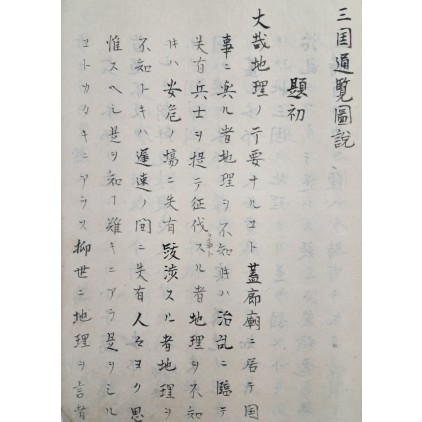 三国通覧圖說
題初
大哉地理ノ肝要ナルコト蓋廊廟ニ居テ国
事ニ與ル者地理ヲ不知時ハ治乱ニ臨テ
失有兵士ヲ提テ征伐スル者地理ヲ不知
時ハ安危ノ場ニ失有跋渉スル者地理ヲ
不知トキハ遅速ノ間ニ失有人々ヨク思
惟スヘシ是ヲ知ー難キニアラ是ヲシル
コトカタキニアラス抑世ニ地理ヲ言者